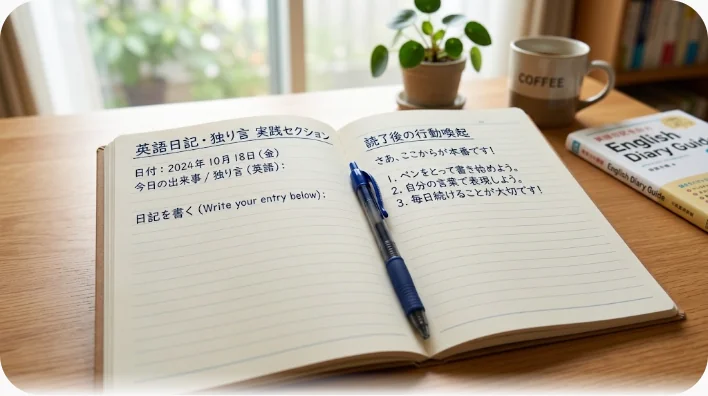 英語日記・独り言 実践セクション
日付：2024年10月18日(金)
今日の出来事 / 独り言 (英語)：
日記を書く (Write your entry below)：
読了後の行動喚起
さあ、ここからが本番です！
1. ペンをとって書き始めよう。
2. 自分の言葉で表現しよう。
3. 毎日続けることが大切です！
COFFEE
English
Diary Guide
English Diary Guide